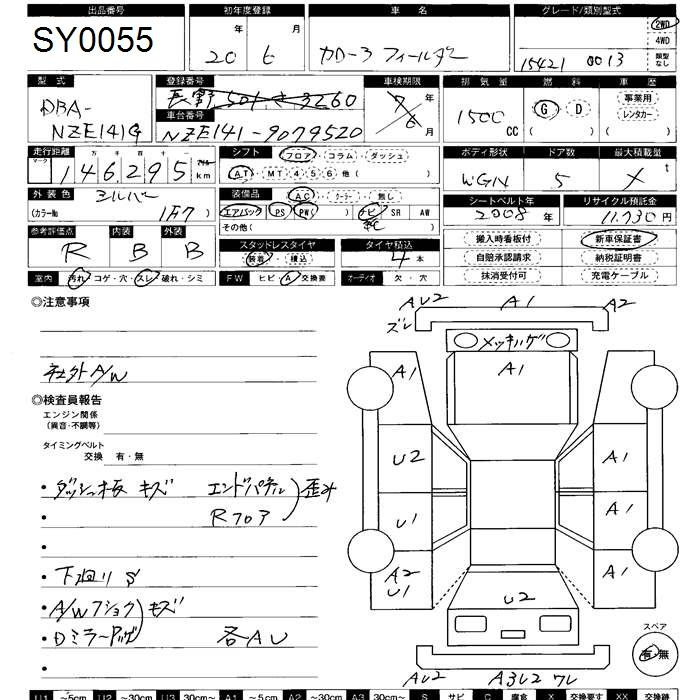 出品番号 初年度登録 車名 グレード/類別型式
SY0055 20年 6月 カローラフィールダー 15421 0013
2WD
4WD
類型なし
型式 登録番号 車検期限 排気量 燃料 車歴
DBA-NZE141G 長野501き3260 年 月 1500CC G・D 事業用
レンタカー
車台番号
NZE141-9079520
走行距離 シフト フロア・コラム・ダッシュ ボディ形状 ドア数 最大積載量
マーク 十万 千 百 十 マイル
146295km AT・MT 4 5 6 他( ) WGN 5 X t
外装色 装備品 AC・クーラー・無し シートベルト年 リサイクル預託金
シルバー エアバック PS PW( ) ナビ SR AW 2008年 11,730円
(カラーNo 1F7 ) その他( )
参考評価点 内装 外装 スタッドレスタイヤ タイヤ積込 搬入時看板付 新車保証書
R B B 装着・積込 4本 自賠承認請求 納税証明書
室内 汚れ・コゲ・穴・スレ・破れ・シミ FW ヒビ・A・交換要 オーディオ 欠・穴 抹消受付可 充電ケーブル
◎注意事項
社外A/W
◎検査員報告
エンジン関係
(異音・不調等)
タイミングベルト
交換 有・無
・ダッシュ板 キズ エンドパネル 歪み
・Rフロア
・
・下廻りS
・A/W7ショク キズ
・Dミラー 各AU
・
AU2 A1 A2
ズレ
メッキハゲ
A1 A1
U2 A1
U1 A1
A2 A1
U1
U2
AU2 A3U2 ワレ
スペア
有・無
U1 ~5cm U2 ~30cm U3 30cm~ A1 ~5cm A2 ~30cm A3 30cm~ S サビ C 腐食 X 交換要す XX 交換跡